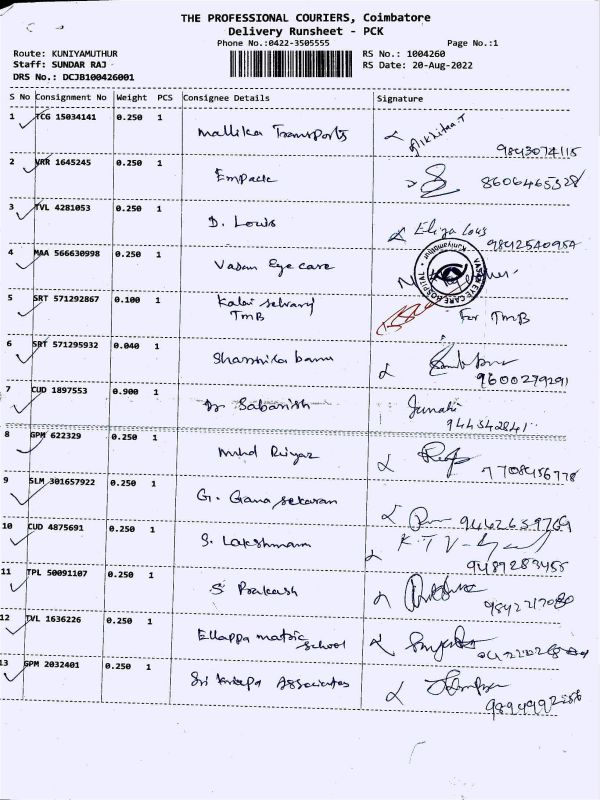 THE PROFESSIONAL COURIERS, Coimbatore
Delivery Runsheet - PCK
Phone No.:0422-3505555
Page No.:1
Route: KUNIYAMUTHUR
RS No.: 1004260
Staff: SUNDAR RAJ
RS Date: 20-Aug-2022
DRS No.: DCJB100426001
S No Consignment No Weight PCS Consignee Details Signature
1 TCG 15034141 0.250 1 Mallika Transports
9843074115
2 VRR 1645245 0.250 1 Empack 8606465328
3 TVL 4281053 0.250 1 D. Louis Eliza Louis
9842540954
4 MAA 566630998 0.250 1 Vasan Eye care
VASAN EYE CARE HOSPITAL Kuniyamuthur
5 SRT 571292867 0.100 1 Kalai selvary
TMB For TMB
6 SRT 571295932 0.040 1 Shamsika banu
9600279291
7 CUD 1897553 0.900 1 Dr Sabarish Janaki
944542841
8 GPM 622329 0.250 1 Mohd Riyaz
7708456778
9 SLM 301657922 0.250 1 G. Gana sekaran
9442659769
10 CUD 4875691 0.250 1 S. Lakshmanan K.T.V
9487283455
11 TPL 50091107 0.250 1 S Prakash
9842217080
12 TVL 1636226 0.250 1 Ellappa matric
school
13 GPM 2032401 0.250 1 Sri Associates